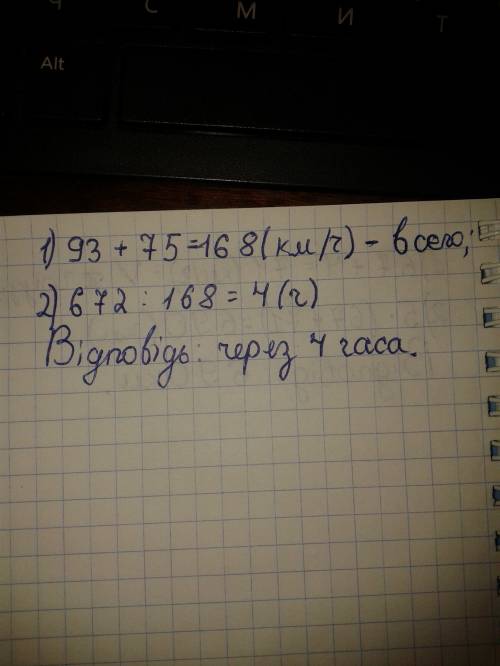 Ч С М И Т
Alt
1) 93 + 75 = 168 (км/ч) - всего;
2) 672 : 168 = 4 (ч)
Відповідь: через 4 часа.